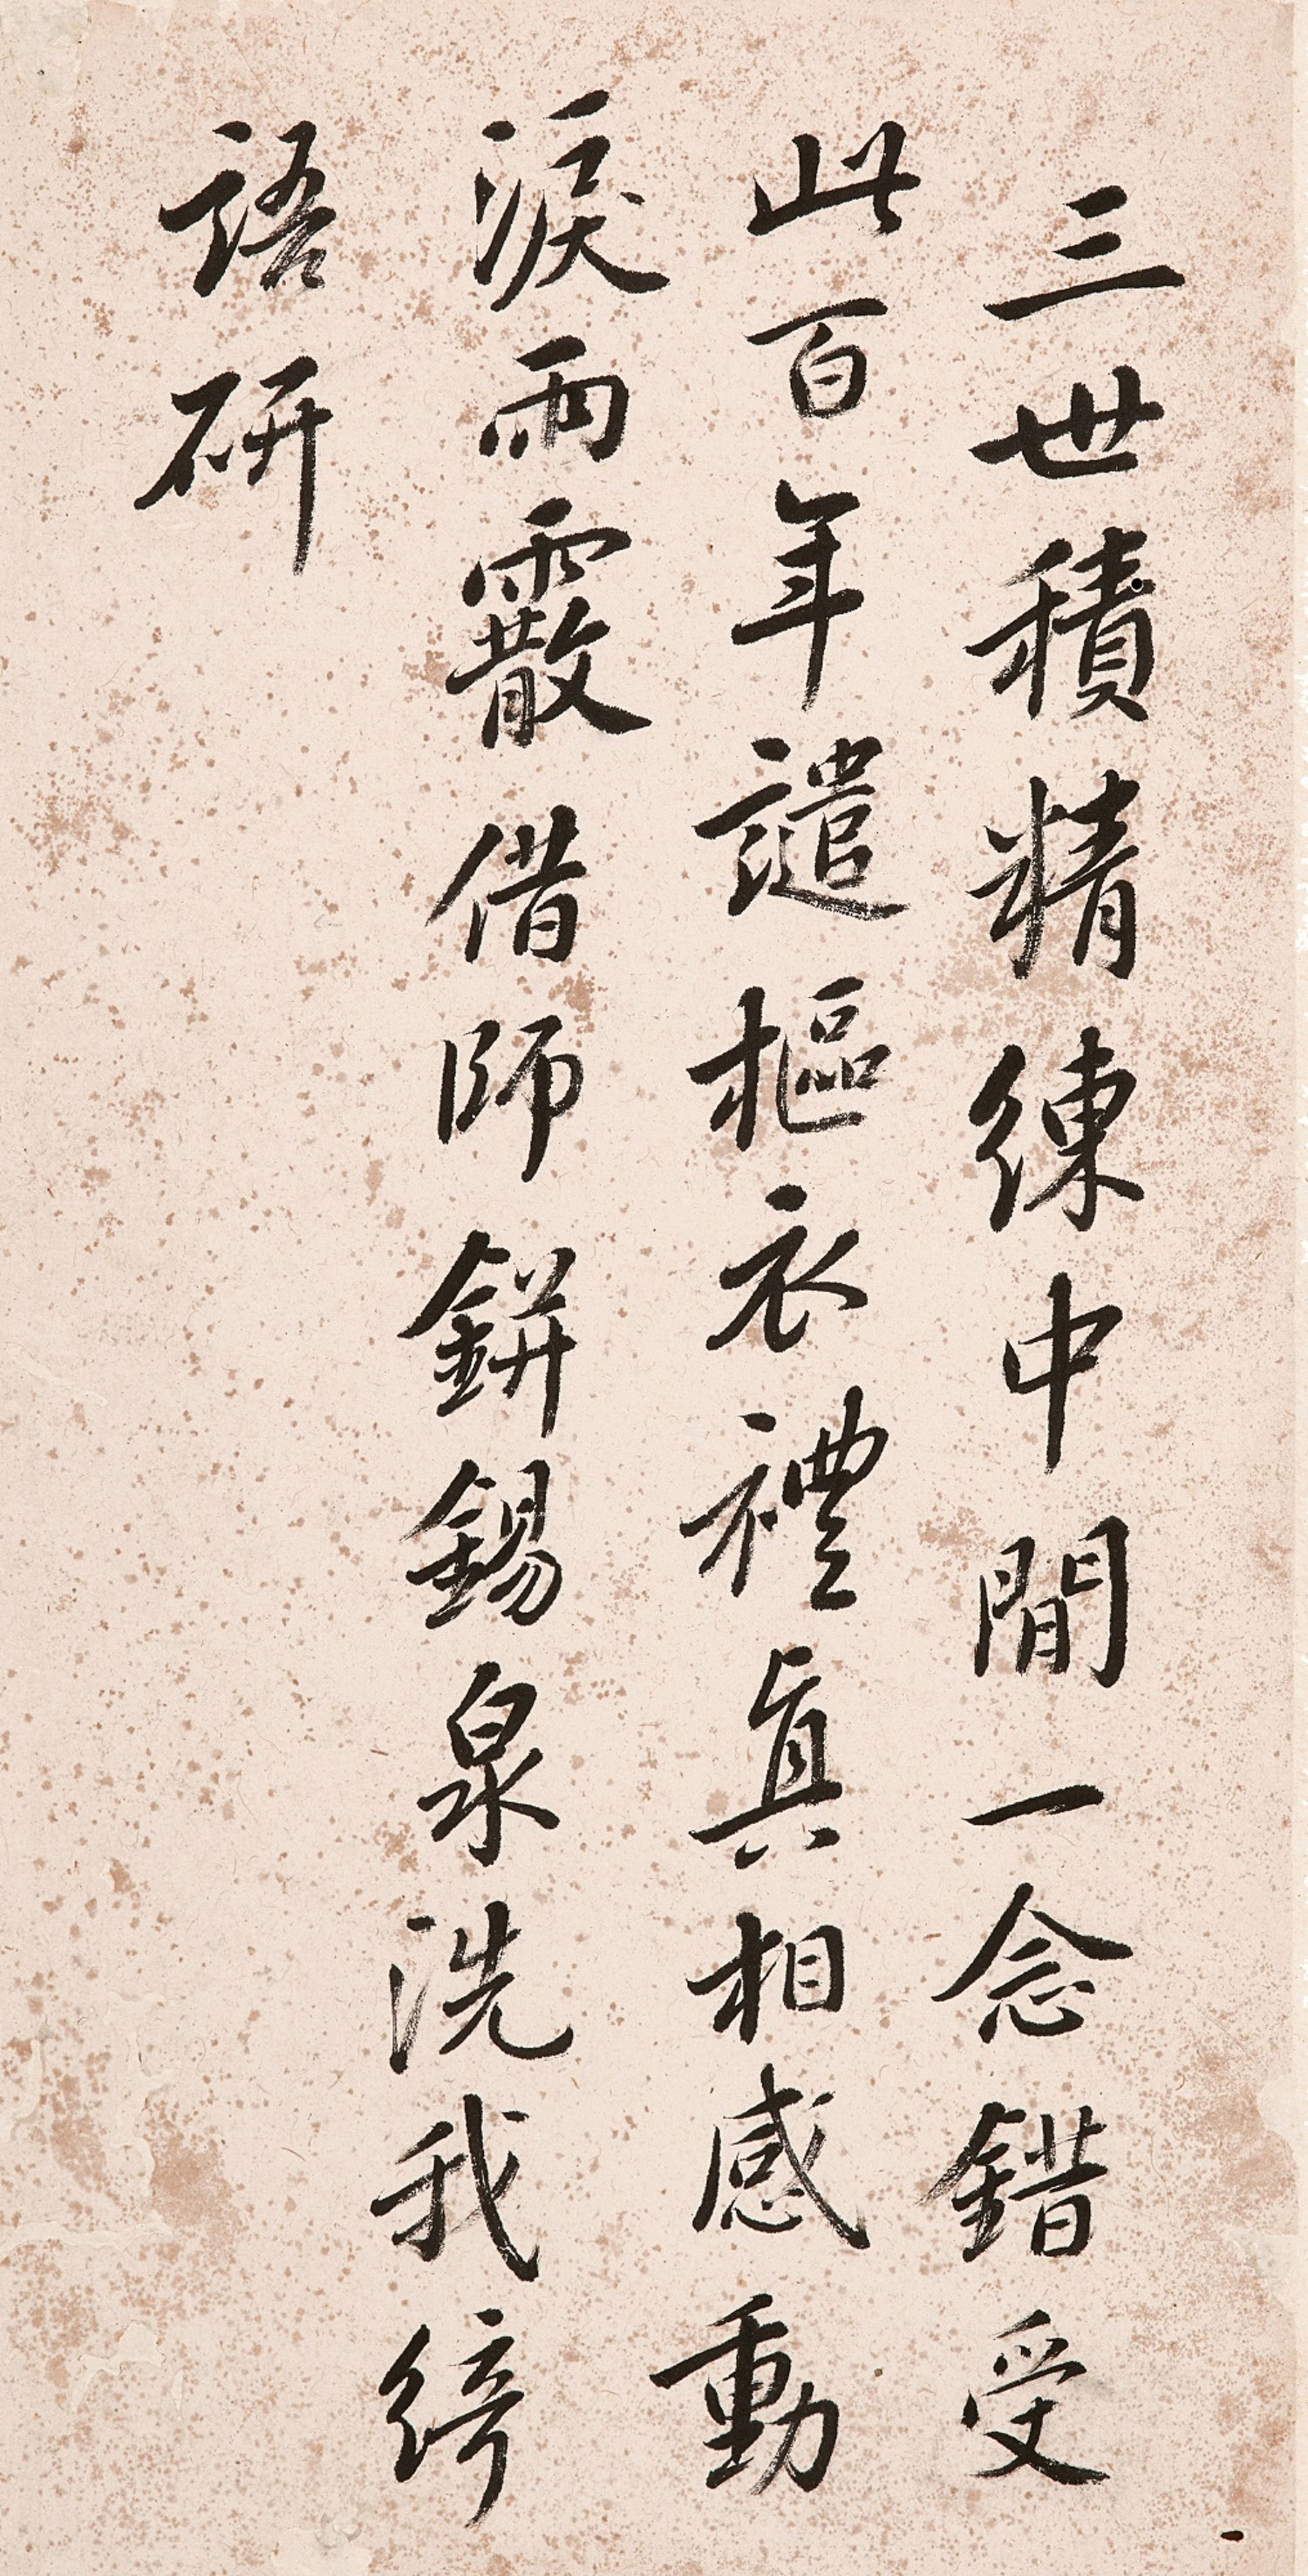 三世積精練中間一念錯受
此百年譴樞衣禮真相感動
淚雨霰借師鉼錫泉洗我綺
語研